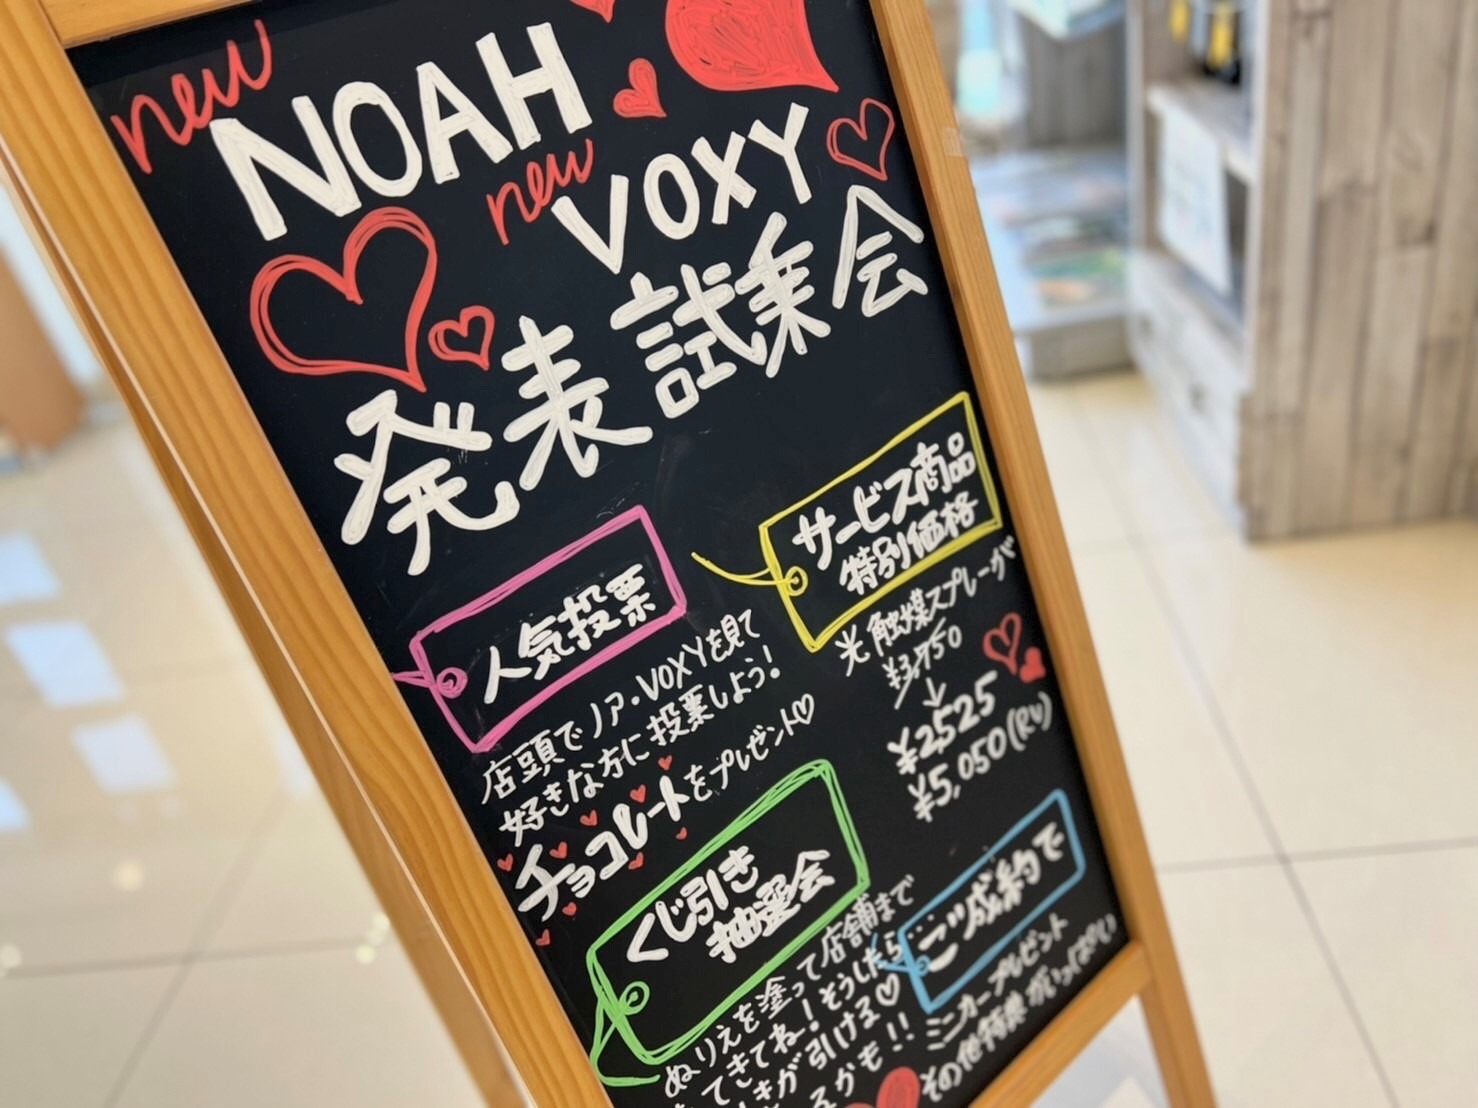 new
NOAH
new
VOXY
発表 試乗会
人気投票
店頭でノア・VOXYを見て
好きな方に投票しよう!
チョコレートをプレゼント♡
サービス商品
特別価格
光触媒スプレーが
¥3,750
↓
¥2,525
¥5,050(RV)
くじ引き
抽選会
ぬりえを塗って店舗まで
てきてね!そうしたら…
きが引ける♡
るかも!!
ご成約で
ミニカープレゼント
その他特典がいっぱい